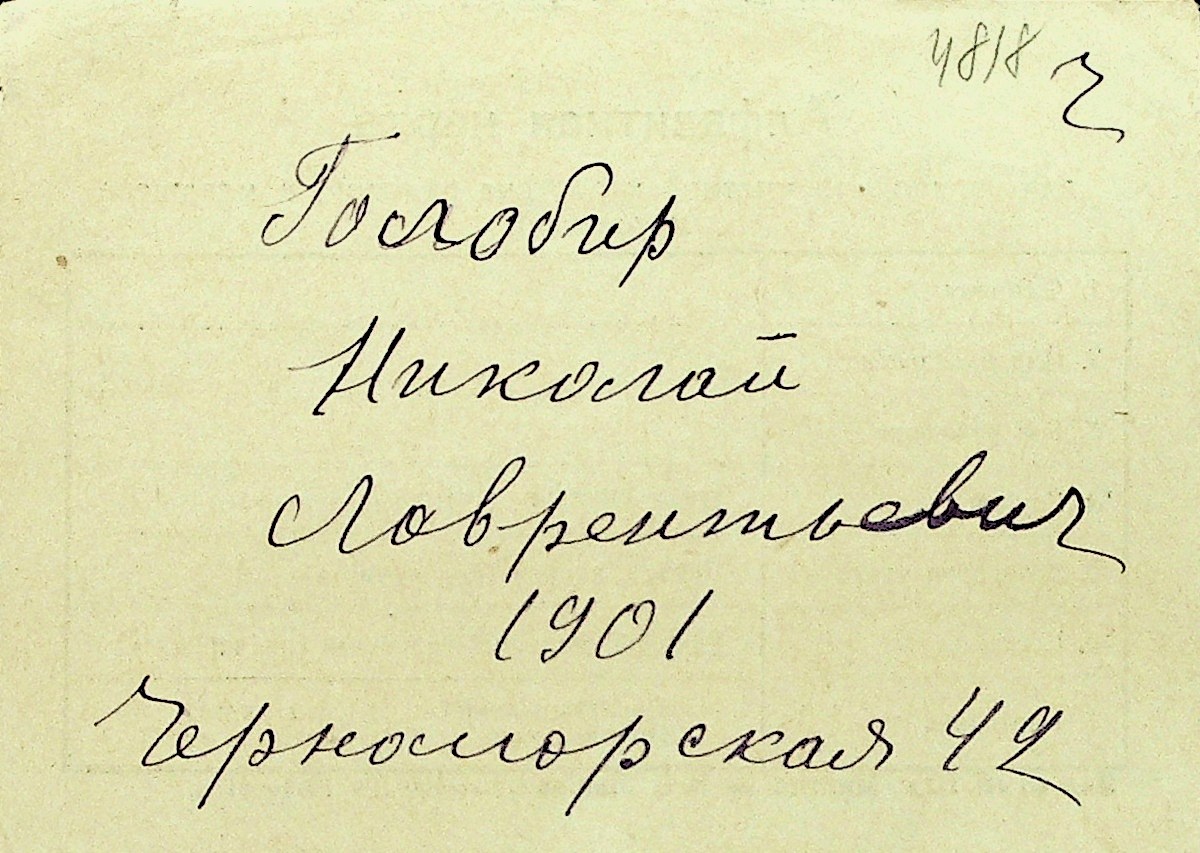 4818 ч
Голобир
Николай
Лаврентьевич
1901
Черноморская 42